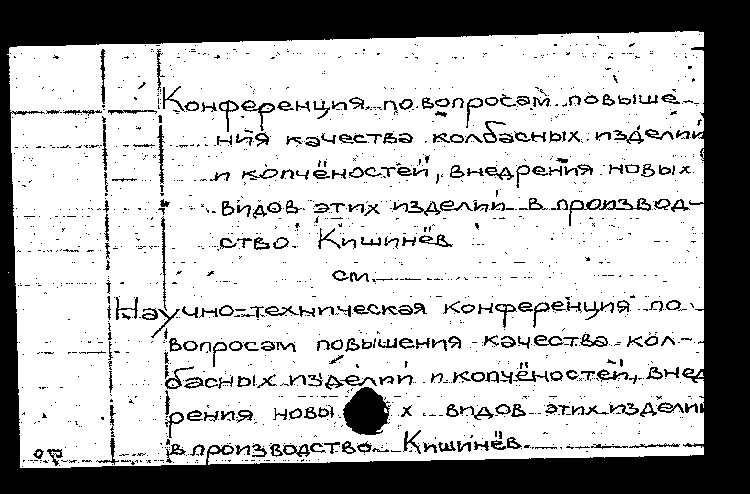 Конференция по вопросам повыше-
ния качества колбасных изделий
и копчёностей, внедрения новых
видов этих изделий в производ-
ство. Кишинёв
см.
Научно-техническая конференция по
вопросам повышения качества кол-
басных изделий и копчёностей, внед
рения новы х видов этих изделий
в производство. Кишинёв.